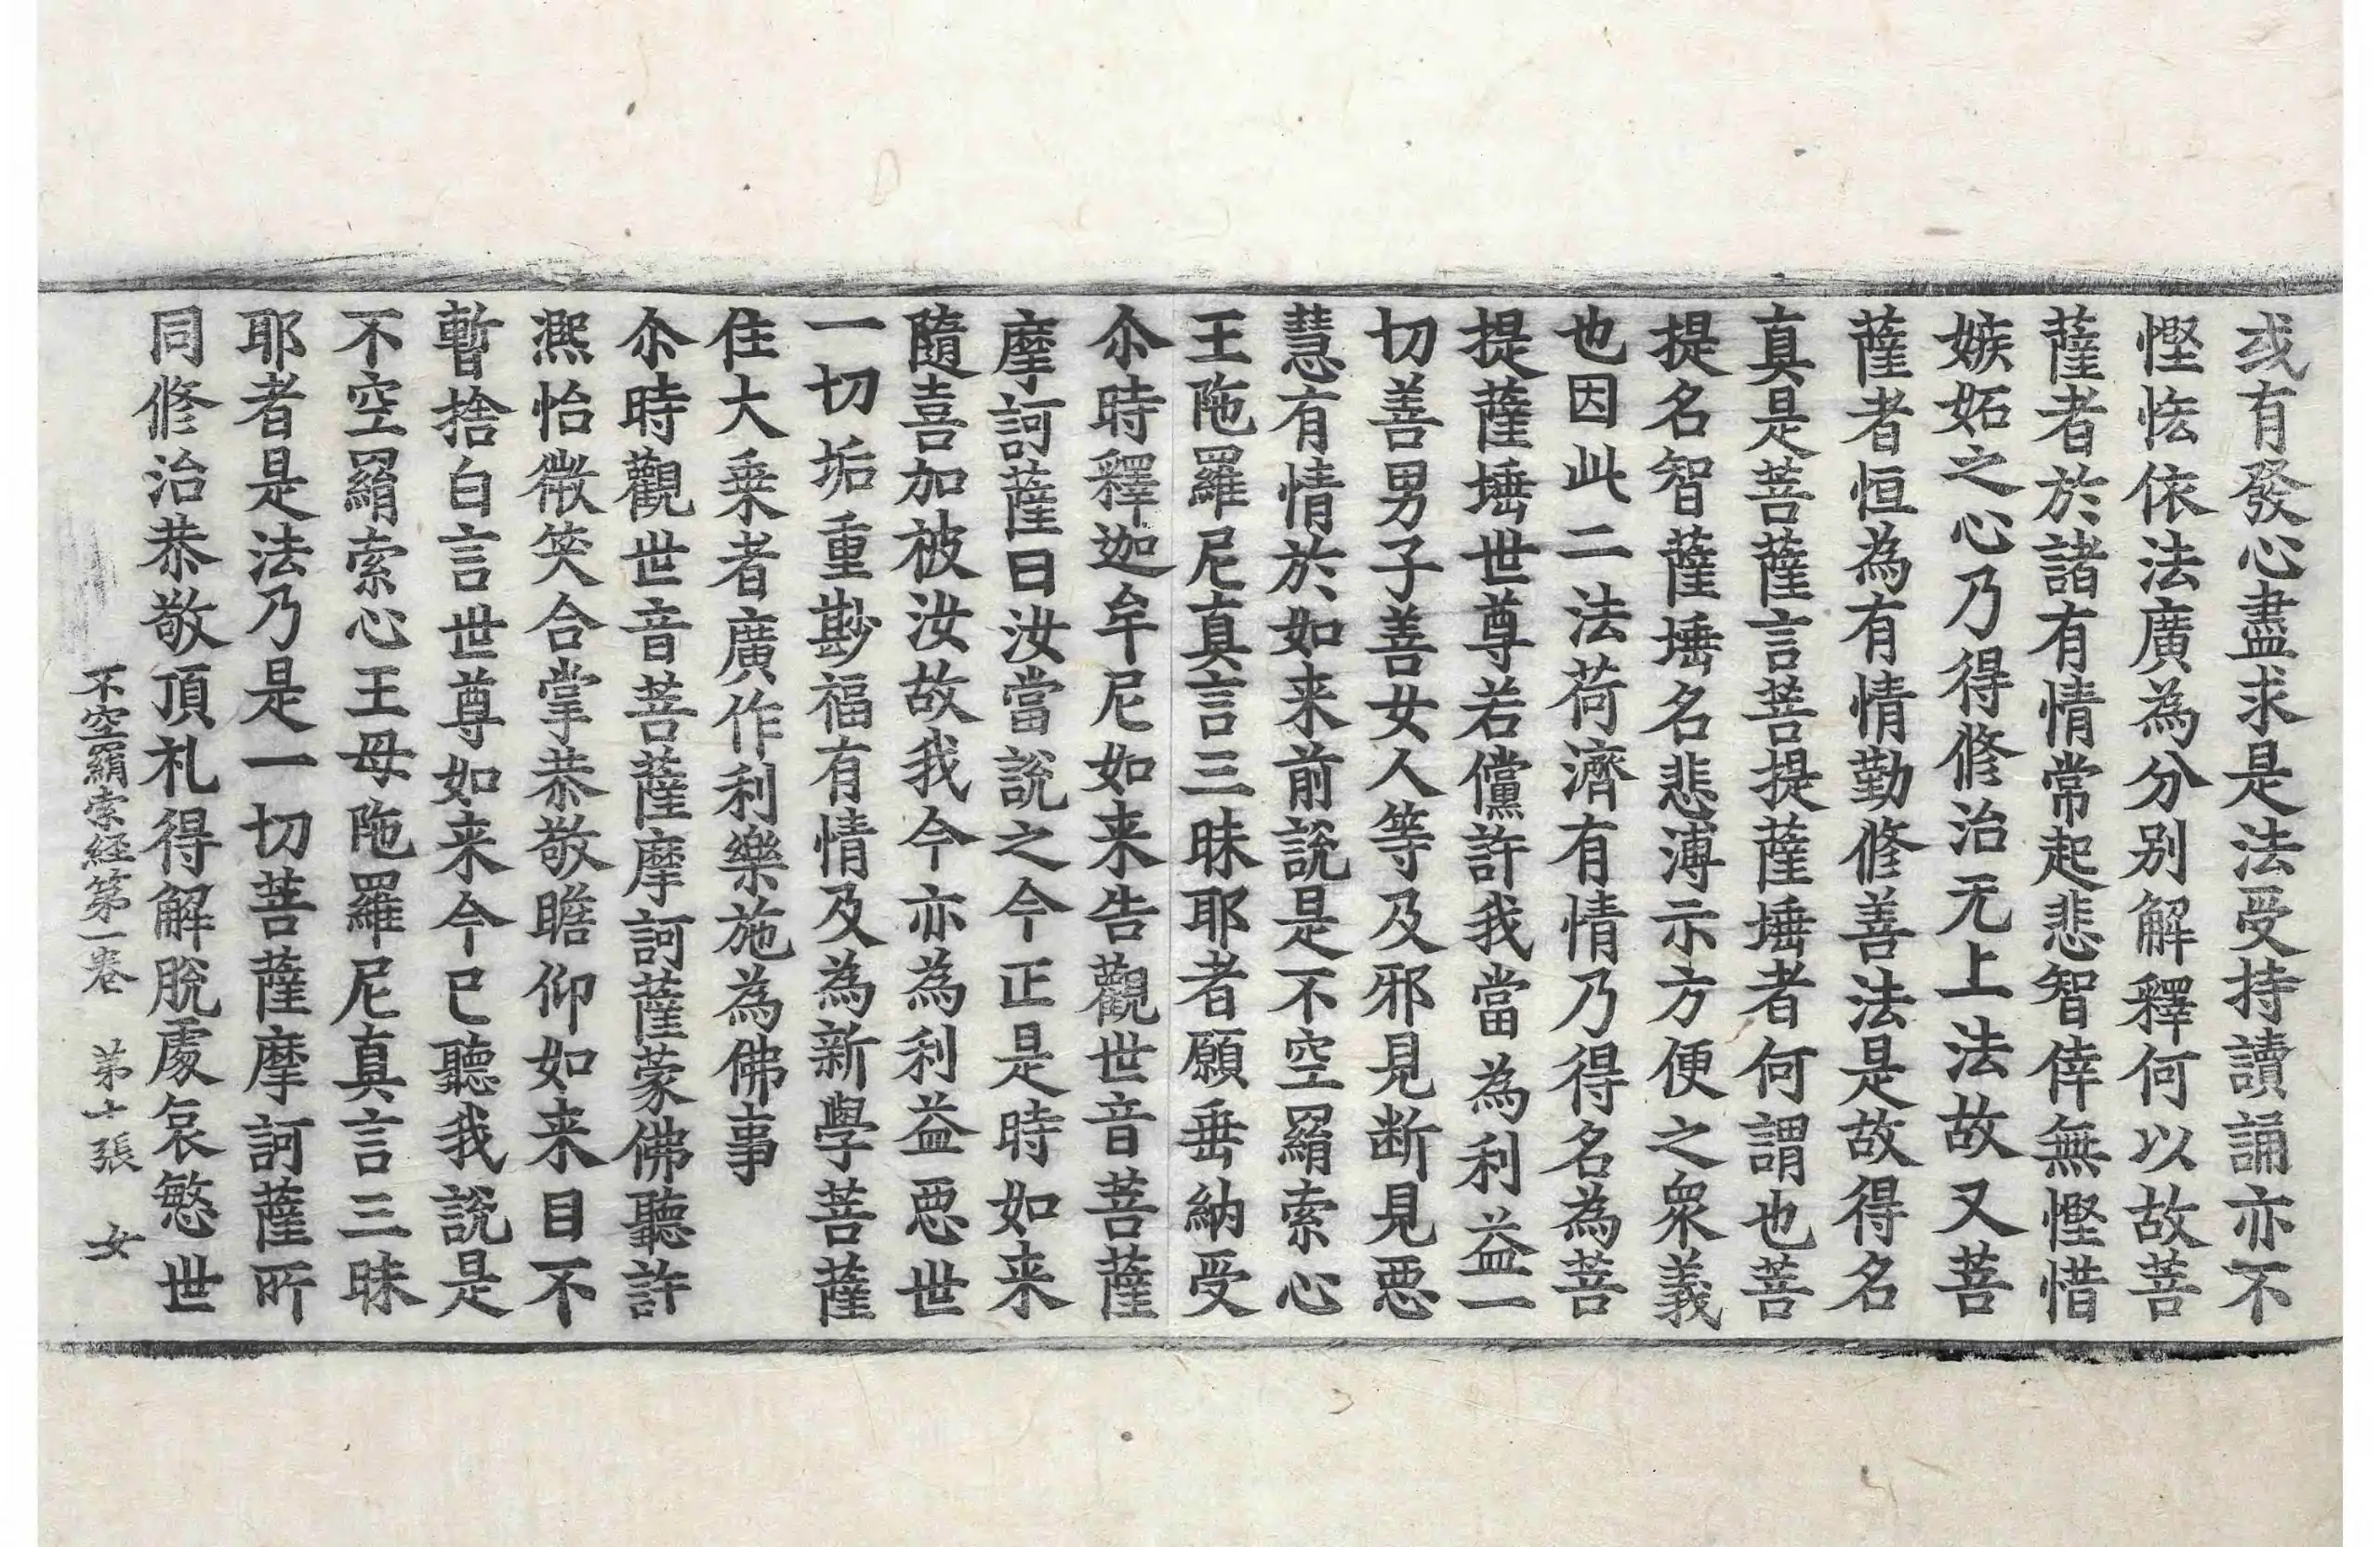 或有發心盡求是法受持讀誦亦不
慳恡依法廣為分別解釋何以故菩
薩者於諸有情常起悲智倖無慳惜
嫉妬之心乃得修治无上法故又菩
薩者恒為有情勤修善法是故得名
真是菩薩言菩提薩埵者何謂也菩
提名智薩埵名悲溥示方便之衆義
也因此二法荷濟有情乃得名為菩
提薩埵世尊若儻許我當為利益一
切善男子善女人等及邪見断見惡
慧有情於如来前說是不空羂索心
王陁羅尼真言三昧耶者願垂納受
尒時釋迦牟尼如来告觀世音菩薩
摩訶薩曰汝當說之今正是時如来
隨喜加被汝故我今亦為利益惡世
一切垢重尠福有情及為新學菩薩
住大乗者廣作利樂施為佛事
尒時觀世音菩薩摩訶薩蒙佛聽許
熈怡微笑合掌恭敬瞻仰如来目不
暫捨白言世尊如来今已聽我說是
不空羂索心王母陁羅尼真言三昧
耶者是法乃是一切菩薩摩訶薩所
同修治恭敬頂礼得解脫處哀愍世
不空羂索経第一卷 第十張 女